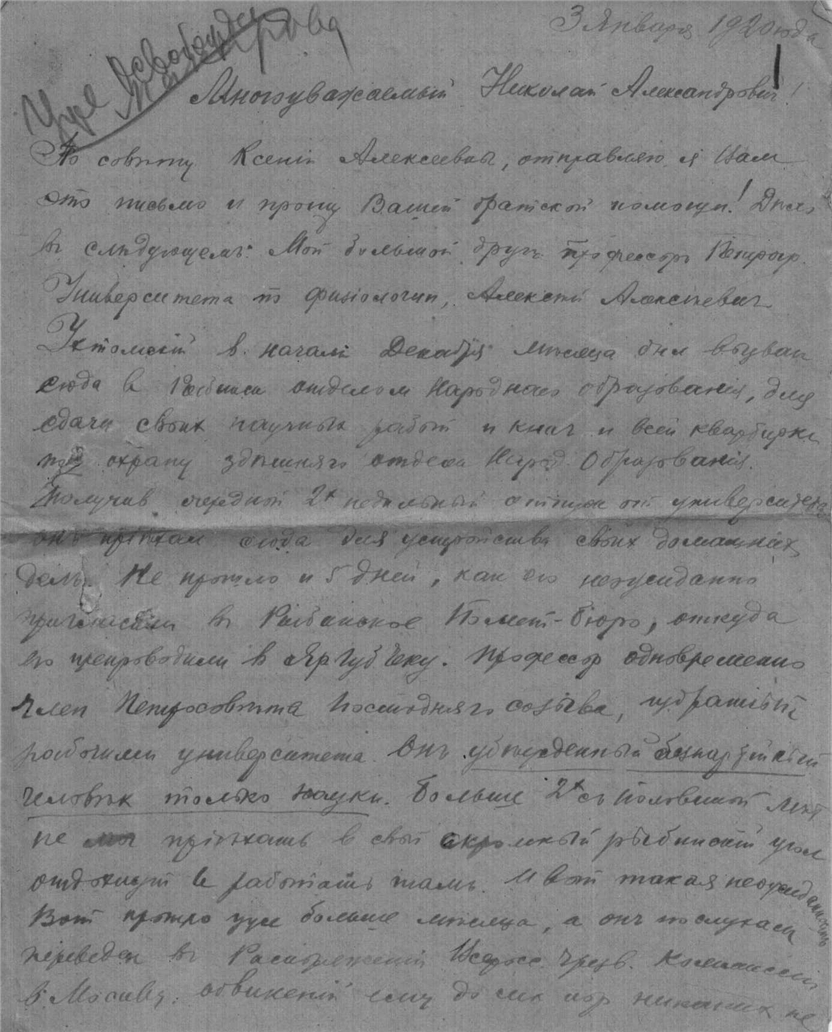 3 Января 1920 года
Уже освобожден
Многоуважаемый Николай Александрович!
По совѣту Ксеніи Алексеевны, отправляю я Вам
это письмо и прошу Вашей братской помощи! Дело
въ слѣдующемъ: Мой большой другъ профессоръ Петрогр.
Университета по физіологіи, Алексѣй Алексѣевич
Ухтомскій в началѣ Декабря мѣсяца был вызван
сюда в Рыбинск отделом Народнаго образованія, для
сдачи своих научных работ и книг и всей квартиры
под охрану здѣшняго отдела Народ. Образованія.
Получив очередной 2х недельный отпуск от университета
онъ пріѣхал сюда для устройства своих домашних
делъ. Не прошло и 5 дней, как его неожиданно
пригласили въ Рыбинское Полит-бюро, откуда
его препроводили в ЯрГубЧеку. Профессор одновременно
член Петросовѣта Послѣдняго созыва, избранный
рабочими университета. Онъ убѣжденный безпартійный
человѣк только науки. Больше 2х съ половиной лѣт
не мог пріѣхать в свой скромный рыбинскій угол
отдохнуть и работать тамъ. И вот такая неожиданность
Вот прошло уже больше мѣсяца, а онъ по слухам
переведен въ Распоряженій Всеросс. Чрезв. Коммиссіи
в Москву. обвиненій ему до сих пор никаких не